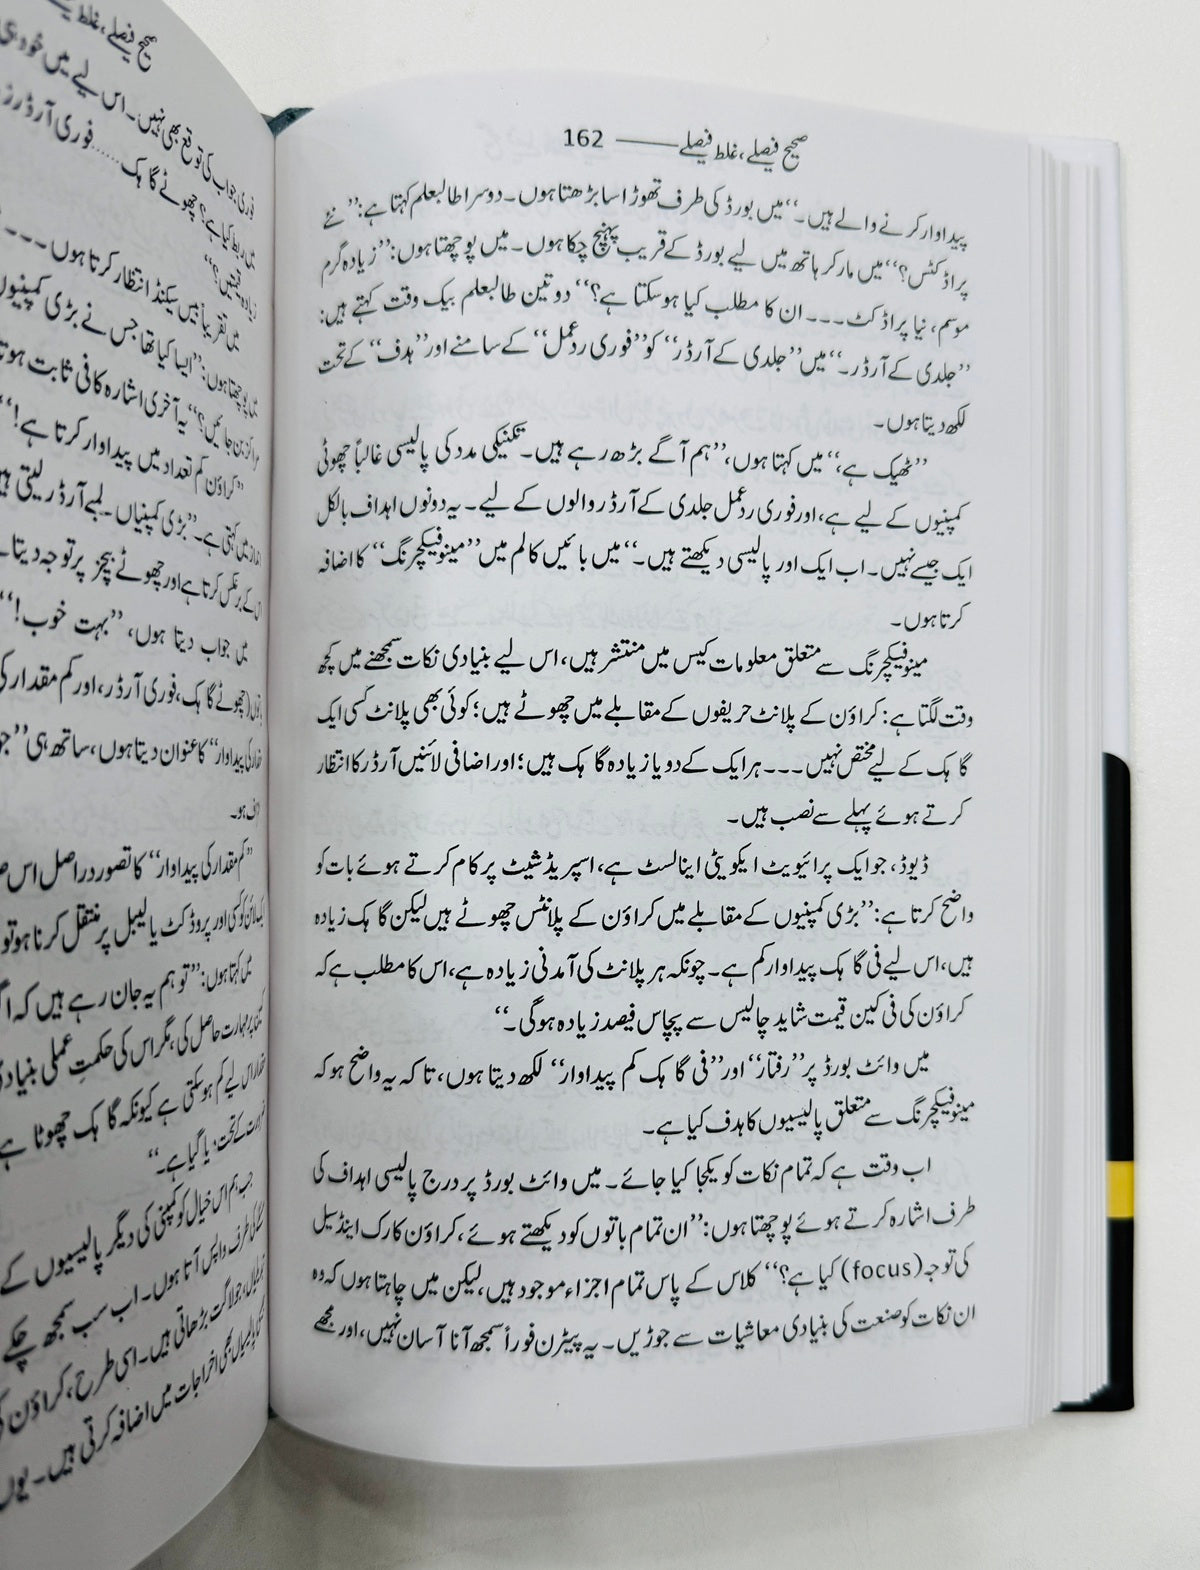 صحیح فیصلے، غلط فیصلے ——— 162
پیداوار کرنے والے ہیں۔‘‘ میں بورڈ کی طرف تھوڑا سا بڑھتا ہوں۔ دوسرا طالبعلم کہتا ہے: ’’نئے
پراڈکٹس؟‘‘ میں مارکر ہاتھ میں لیے بورڈ کے قریب پہنچ چکا ہوں۔ میں پوچھتا ہوں: ’’زیادہ گرم
موسم، نیا پراڈکٹ۔۔۔ ان کا مطلب کیا ہو سکتا ہے؟‘‘ دو تین طالبعلم بیک وقت کہتے ہیں:
’’جلدی کے آرڈر۔‘‘ میں ’’جلدی کے آرڈر‘‘ کو ’’فوری ردعمل‘‘ کے سامنے اور ’’ہدف‘‘ کے تحت
لکھ دیتا ہوں۔
’’ٹھیک ہے،‘‘ میں کہتا ہوں، ’’ہم آگے بڑھ رہے ہیں۔ تکنیکی مدد کی پالیسی غالباً چھوٹی
کمپنیوں کے لیے ہے، اور فوری ردعمل جلدی کے آرڈر والوں کے لیے۔ یہ دونوں اہداف بالکل
ایک جیسے نہیں۔ اب ایک اور پالیسی دیکھتے ہیں۔‘‘ میں بائیں کالم میں ’’مینوفیکچرنگ‘‘ کا اضافہ
کرتا ہوں۔
مینوفیکچرنگ سے متعلق معلومات کیس میں منتشر ہیں، اس لیے بنیادی نکات سمجھنے میں کچھ
وقت لگتا ہے: کراؤن کے پلانٹ حریفوں کے مقابلے میں چھوٹے ہیں؛ کوئی بھی پلانٹ کسی ایک
گاہک کے لیے مختص نہیں۔۔۔ ہر ایک کے دو یا زیادہ گاہک ہیں؛ اور اضافی لائنیں آرڈر کا انتظار
کرتے ہوئے پہلے سے نصب ہیں۔
ڈیوڈ، جو ایک پرائیویٹ ایکویٹی اینالسٹ ہے، اسپریڈشیٹ پر کام کرتے ہوئے بات کو
واضح کرتا ہے: ’’بڑی کمپنیوں کے مقابلے میں کراؤن کے پلانٹس چھوٹے ہیں لیکن گاہک زیادہ
ہیں، اس لیے فی گاہک پیداوار کم ہے۔ چونکہ ہر پلانٹ کی آمدنی زیادہ ہے، اس کا مطلب ہے کہ
کراؤن کی فی کین قیمت شاید چالیس سے پچاس فیصد زیادہ ہوگی۔‘‘
میں وائٹ بورڈ پر ’’رفتار‘‘ اور ’’فی گاہک کم پیداوار‘‘ لکھ دیتا ہوں، تاکہ یہ واضح ہو کہ
مینوفیکچرنگ سے متعلق پالیسیوں کا ہدف کیا ہے۔
اب وقت ہے کہ تمام نکات کو یکجا کیا جائے۔ میں وائٹ بورڈ پر درج پالیسی اہداف کی
طرف اشارہ کرتے ہوئے پوچھتا ہوں: ’’ان تمام باتوں کو دیکھتے ہوئے، کراؤن کارک اینڈ سیل
کی توجہ (focus) کیا ہے؟‘‘ کلاس کے پاس تمام اجزاء موجود ہیں، لیکن میں چاہتا ہوں کہ وہ
ان نکات کو صنعت کی بنیادی معاشیات سے جوڑیں۔ یہ پیٹرن فوراً سمجھ آنا آسان نہیں، اور مجھے
صحیح فیصلے، غلط
فوری جواب کی توقع بھی نہیں۔ اس لیے میں خود ہی
چھوٹے گاہک ...... فوری آرڈرز
میں تقریباً بیس سیکنڈ انتظار کرتا ہوں۔۔۔
میں پوچھتا ہوں: ’’ایسا کیا تھا جس نے بڑی کمپنیوں
یہ آخری اشارہ کافی ثابت ہوتا
’’کراؤن کم تعداد میں پیداوار کرتا ہے!‘‘
کہتی ہے۔ ’’بڑی کمپنیاں۔ لمبے آرڈر لیتی ہیں
کے برعکس کرتا ہے اور چھوٹے بیچز پر توجہ دیتا
میں جواب دیتا ہوں، ’’بہت خوب!‘‘
چھوٹے گاہک، فوری آرڈر، اور کم مقدار کی
پیداوار‘‘ کا عنوان دیتا ہوں، ساتھ ہی
ہو۔
’’کم مقدار کی پیداوار‘‘ کا تصور دراصل اس
کو کسی اور پروڈکٹ یا لیبل پر منتقل کرنا ہو تو
میں کہتا ہوں: ’’تو ہم یہ جان رہے ہیں کہ
مہارت حاصل کی، مگر اس کی حکمتِ عملی بنیادی
اس لیے کم ہو سکتی ہے کیونکہ گاہک چھوٹا ہے
کے تحت دیا گیا ہے۔‘‘
جب ہم اس خیال کو کمپنی کی دیگر پالیسیوں کے
کی طرف واپس آتا ہوں۔ اب سب سمجھ چکے
جو لاگت بڑھاتی ہیں۔ اسی طرح، کراؤن کی
بھی اخراجات میں اضافہ کرتی ہیں۔ یوں